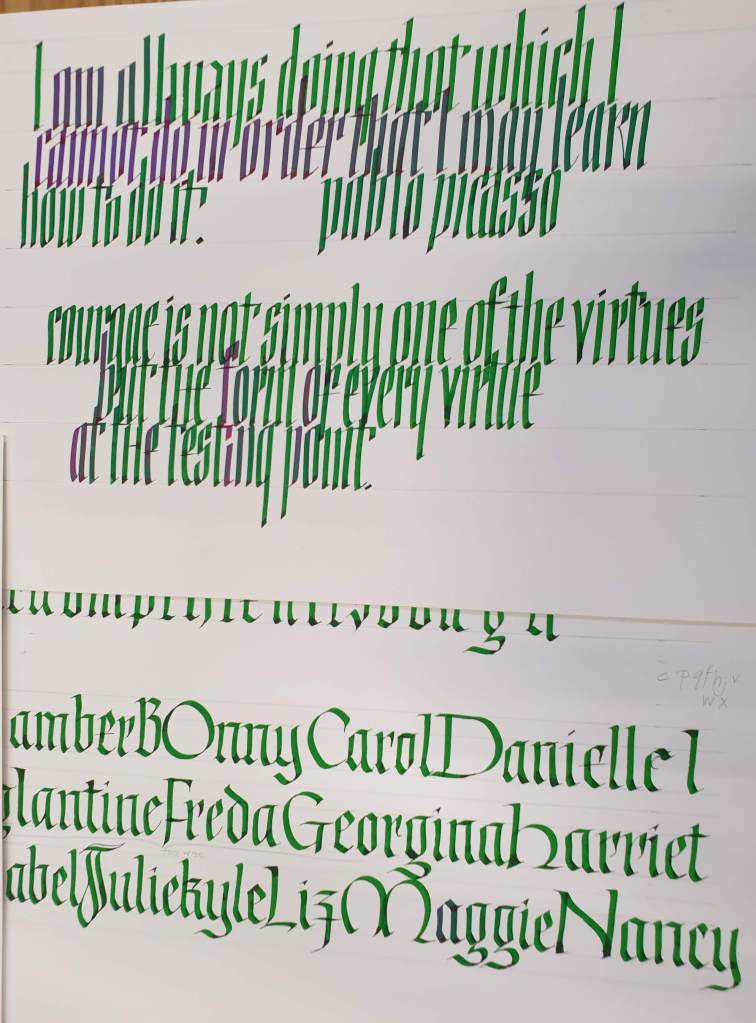 I am allways doing that which I
cannot do in order that I may learn
how to do it. pablo picasso
courage is not simply one of the virtues
but the form of every virtue
at the testing point.
c p q f h j v
w x
amberBOnnyCarolDanielle l
glantineFredaGeorginaharriet
abelJuliekyleLizMaggieNancy